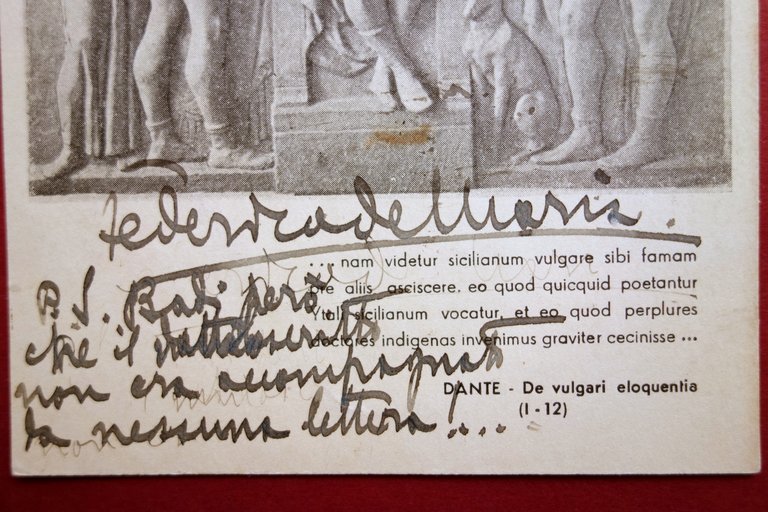 Federico de Maria.
....nam videtur sicilianum vulgare sibi famam
pre aliis asciscere. eo quod quicquid poetantur
Ytali sicilianum vocatur, et eo quod perplures
doctores indigenas invenimus graviter cecinisse ...
DANTE - De vulgari eloquentia
(I - 12)
P. S. Badi però
che il dattiloscritto
non era accompagnato
da nessuna lettera!....